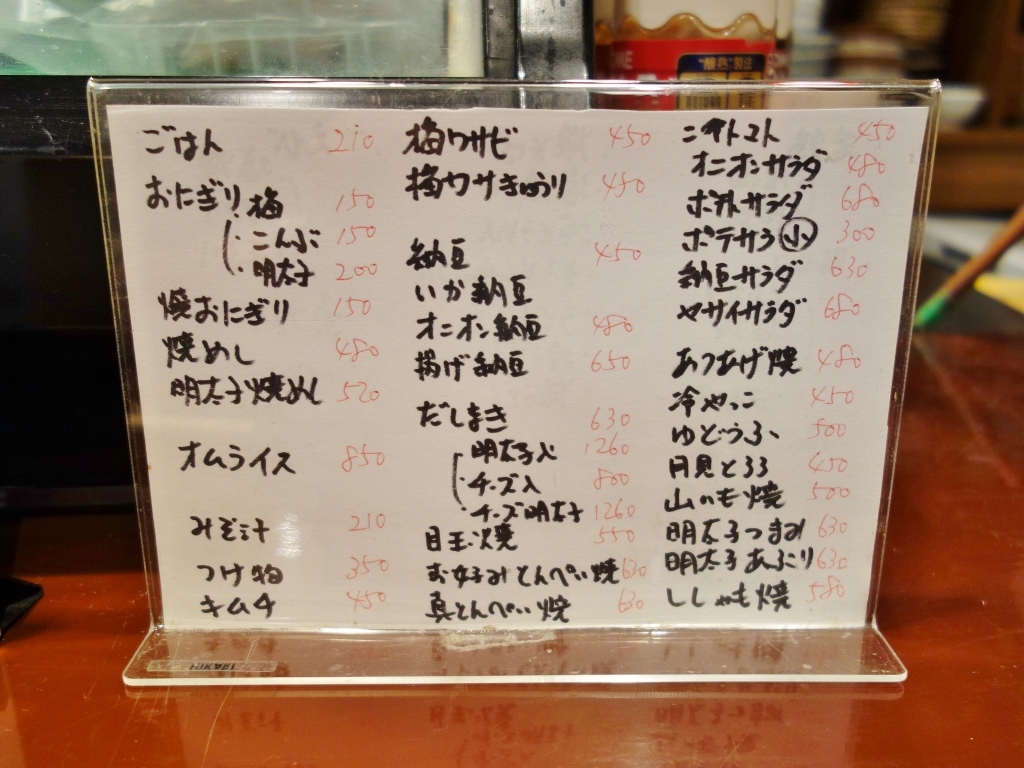 "醇熟"製法
ごはん 210
おにぎり 梅 150
こんぶ 150
明太子 200
焼おにぎり 150
焼めし 480
明太子焼めし 520
オムライス 850
みそ汁 210
つけ物 350
キムチ 450
梅ワサビ 450
梅ワサきゅうり 480
納豆 450
いか納豆
オニオン納豆 480
揚げ納豆 650
だしまき 630
明太子入 1260
チーズ入 800
チーズ明太子 1260
目玉焼 550
お好みとんぺい焼 630
真とんぺい焼 630
トマト 450
オニオンサラダ 480
ポテトサラダ 680
ポテサラ 小 300
納豆サラダ 630
ヤサイサラダ 680
あつあげ焼 480
冷やっこ 450
ゆどうふ 500
月見とろろ 450
山いも焼 500
明太子つまみ 630
明太子あぶり 630
ししゃも焼 580
HIKARI